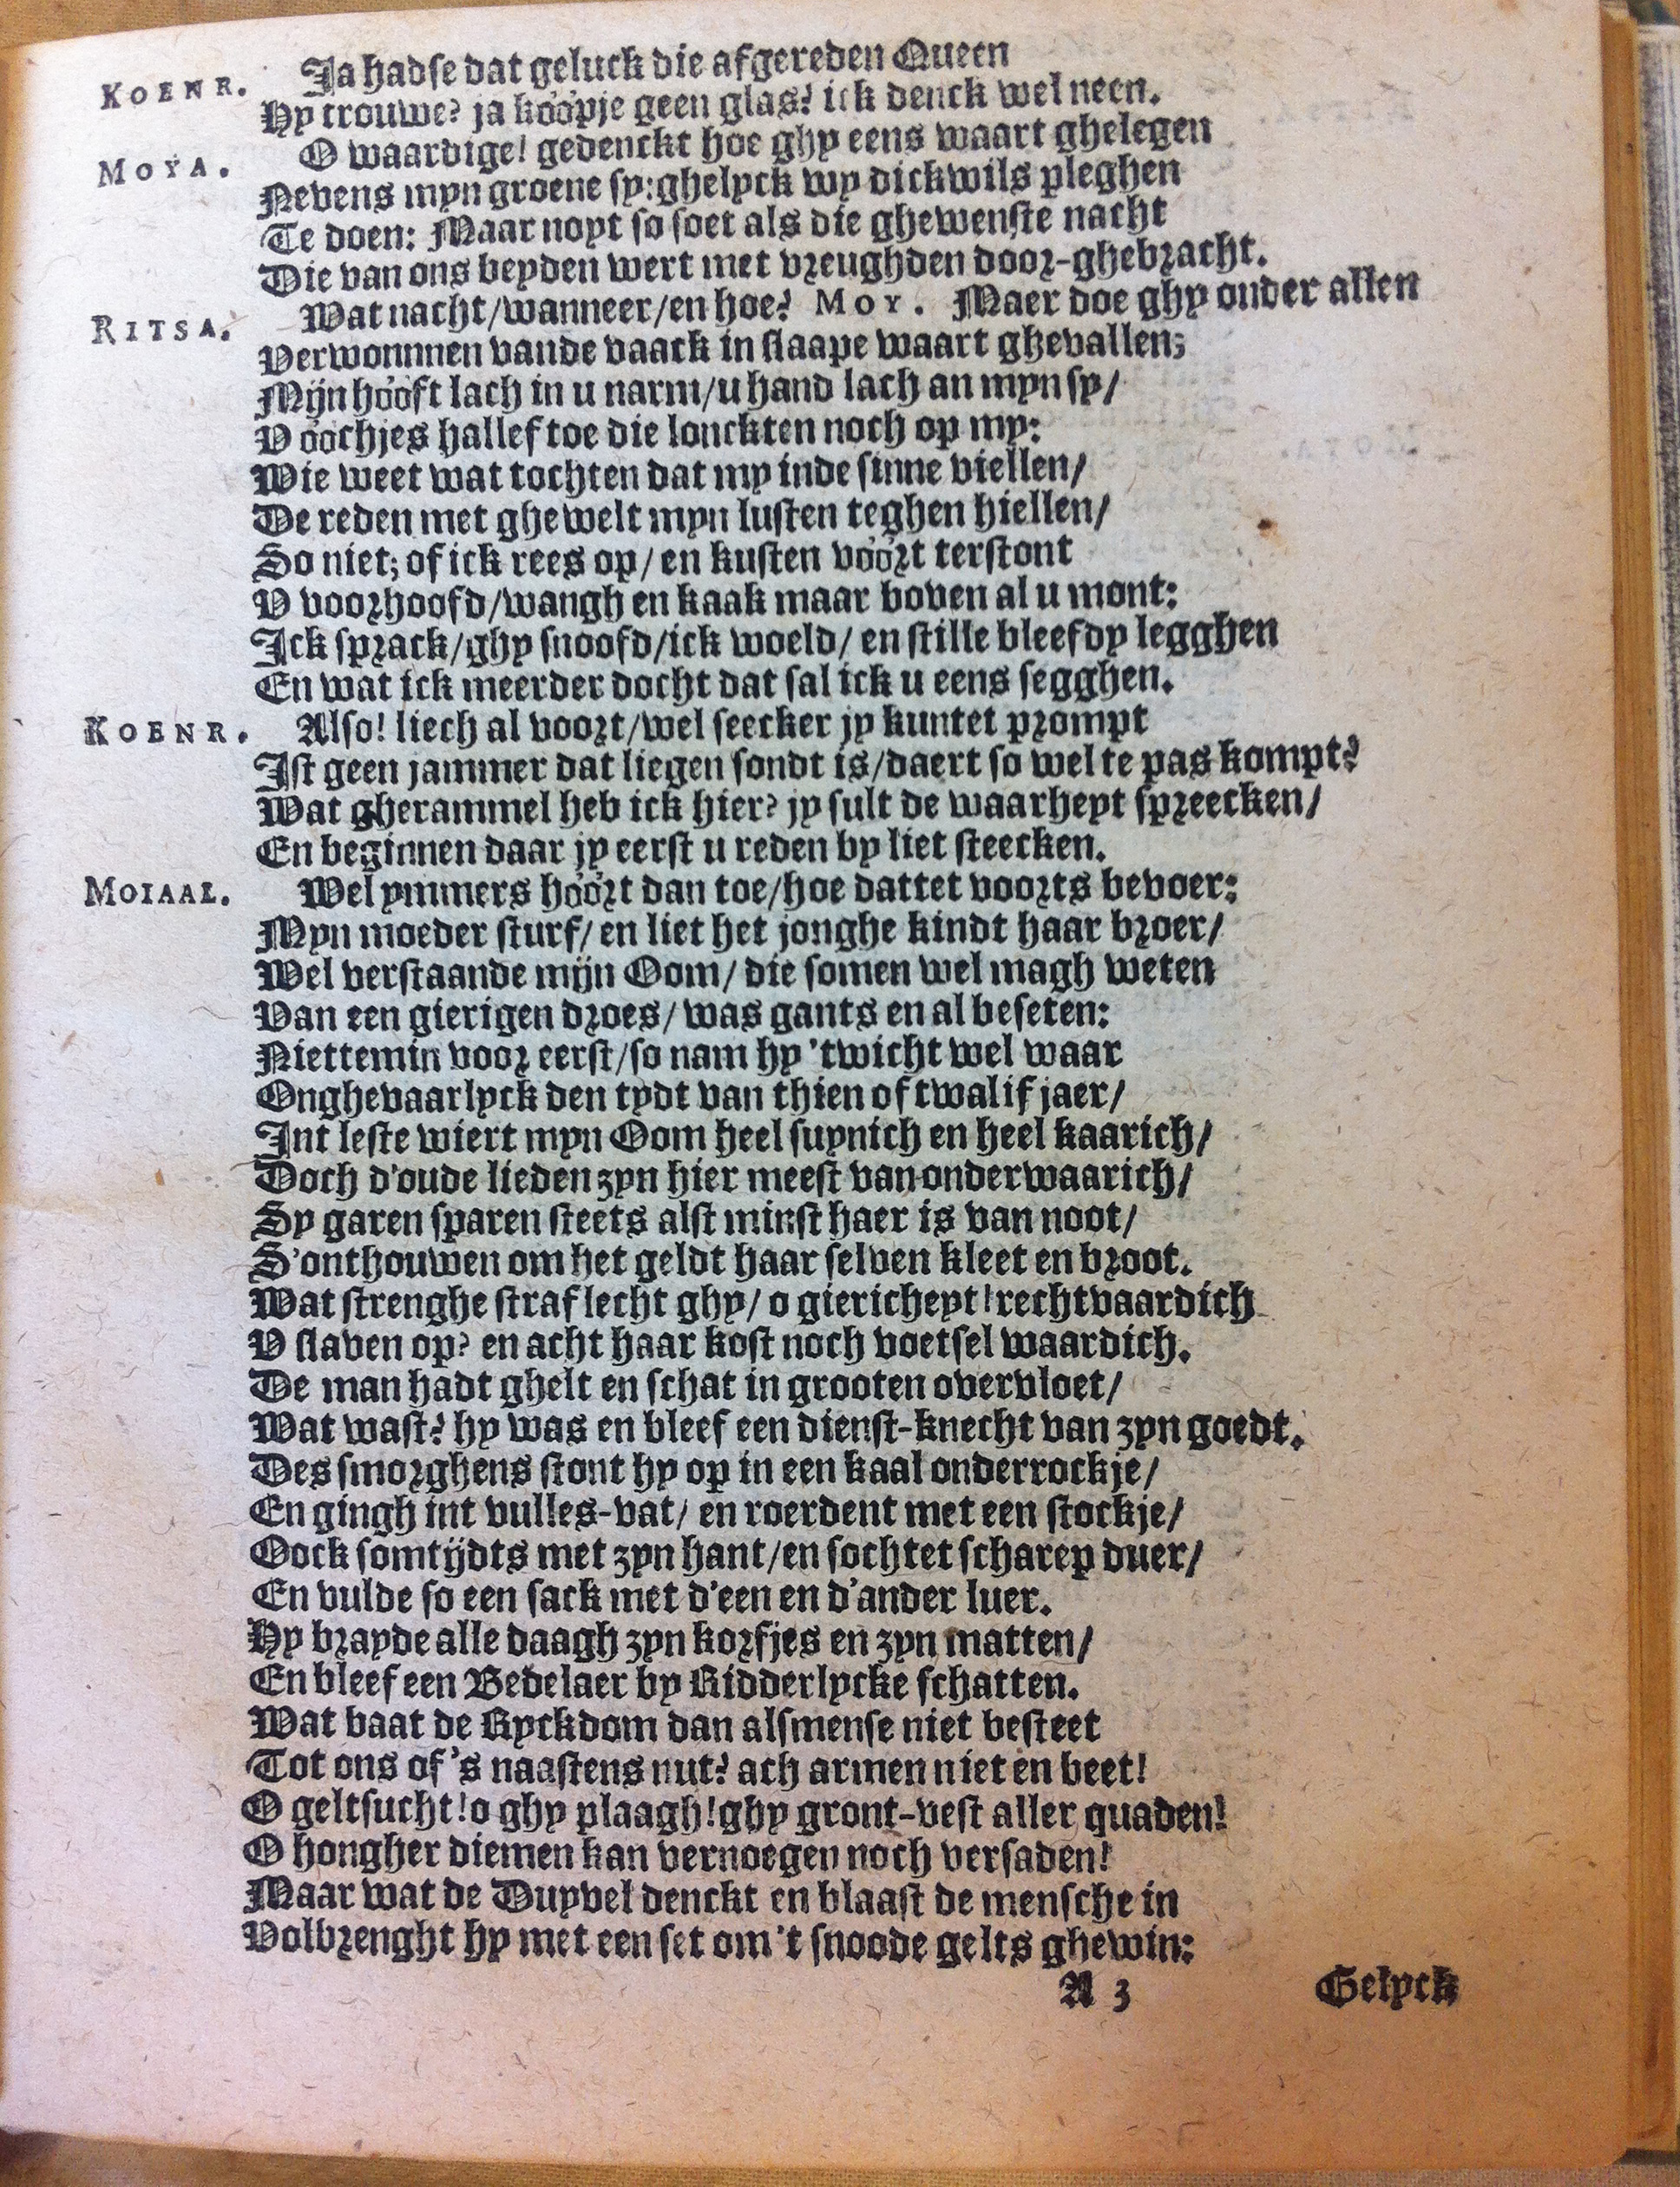 KOENR. Ja hadse dat geluck die afgereden Queen
Hy trouwe? ja kóópje geen glas? ick denck wel neen.
MOYA. O waardige! gedenckt hoe ghy eens waart ghelegen
Nevens myn groene sy: ghelyck wy dickwils pleghen
Te doen: Maar noyt so soet als die ghewenste nacht
Die van ons beyden wert met vreughden door-ghebracht.
RITSA. Wat nacht/wanneer/en hoe? MOY. Maer doe ghy onder allen
Verwonnnen vande vaack in slaape waart ghevallen;
Mijn hóóft lach in u narm/u hand lach an myn sy/
V óóchjes hallef toe die lonckten noch op my:
Wie weet wat tochten dat my inde sinne viellen/
De reden met ghewelt myn lusten teghen hiellen/
So niet; of ick rees op/ en kusten vóórt terstont
V voorhoofd/wangh en kaak maar boven al u mont:
Ick sprack/ghy snoofd/ick woeld/ en stille bleefdy legghen
En wat ick meerder docht dat sal ick u eens segghen.
KOENR. Also! liech al voort/wel seecker jy kuntet prompt
Ist geen jammer dat liegen sondt is/daert so wel te pas kompt?
Wat gherammel heb ick hier? jy sult de waarheyt spreecken/
En beginnen daar jy eerst u reden by liet steecken.
MOIAAL. Wel ymmers hóórt dan toe/hoe dattet voorts bevoer:
Myn moeder sturf/ en liet het jonghe kindt haar broer/
Wel verstaande mijn Oom/ die somen wel magh weten
Van een gierigen droes/ was gants en al beseten:
Niettemin voor eerst/so nam hy 'twicht wel waar
Onghevaarlyck den tydt van thien of twalif jaer/
Int leste wiert myn Oom heel suynich en heel kaarich/
Doch d'oude lieden zyn hier meest van onderwaarich/
Sy garen sparen steets alst minst haer is van noot/
S'onthouwen om het geldt haar selven kleet en broot.
Wat strenghe straf lecht ghy/ o giericheyt! rechtvaardich
V slaven op? en acht haar kost noch voetsel waardich.
De man hadt ghelt en schat in grooten overvloet/
Wat wast? hy was en bleef een dienst-knecht van zyn goedt.
Des smorghens stont hy op in een kaal onderrockje/
En gingh int vulles-vat/ en roerdent met een stockje/
Oock somtijdts met zyn hant/en sochtet scharep duer/
En vulde so een sack met d'een en d'ander luer.
Hy brayde alle daagh zyn korfjes en zyn matten/
En bleef een Bedelaer by Ridderlycke schatten.
Wat baat de Ryckdom dan alsmense niet besteet
Tot ons of 's naastens nut? ach armen niet en beet!
O geltsucht! o ghy plaagh! ghy gront-vest aller quaden!
O hongher diemen kan vernoegen noch versaden!
Maar wat de Duyvel denckt en blaast de mensche in
Volbrenght hy met een set om 't snoode gelts ghewin:
A 3 Gelyck